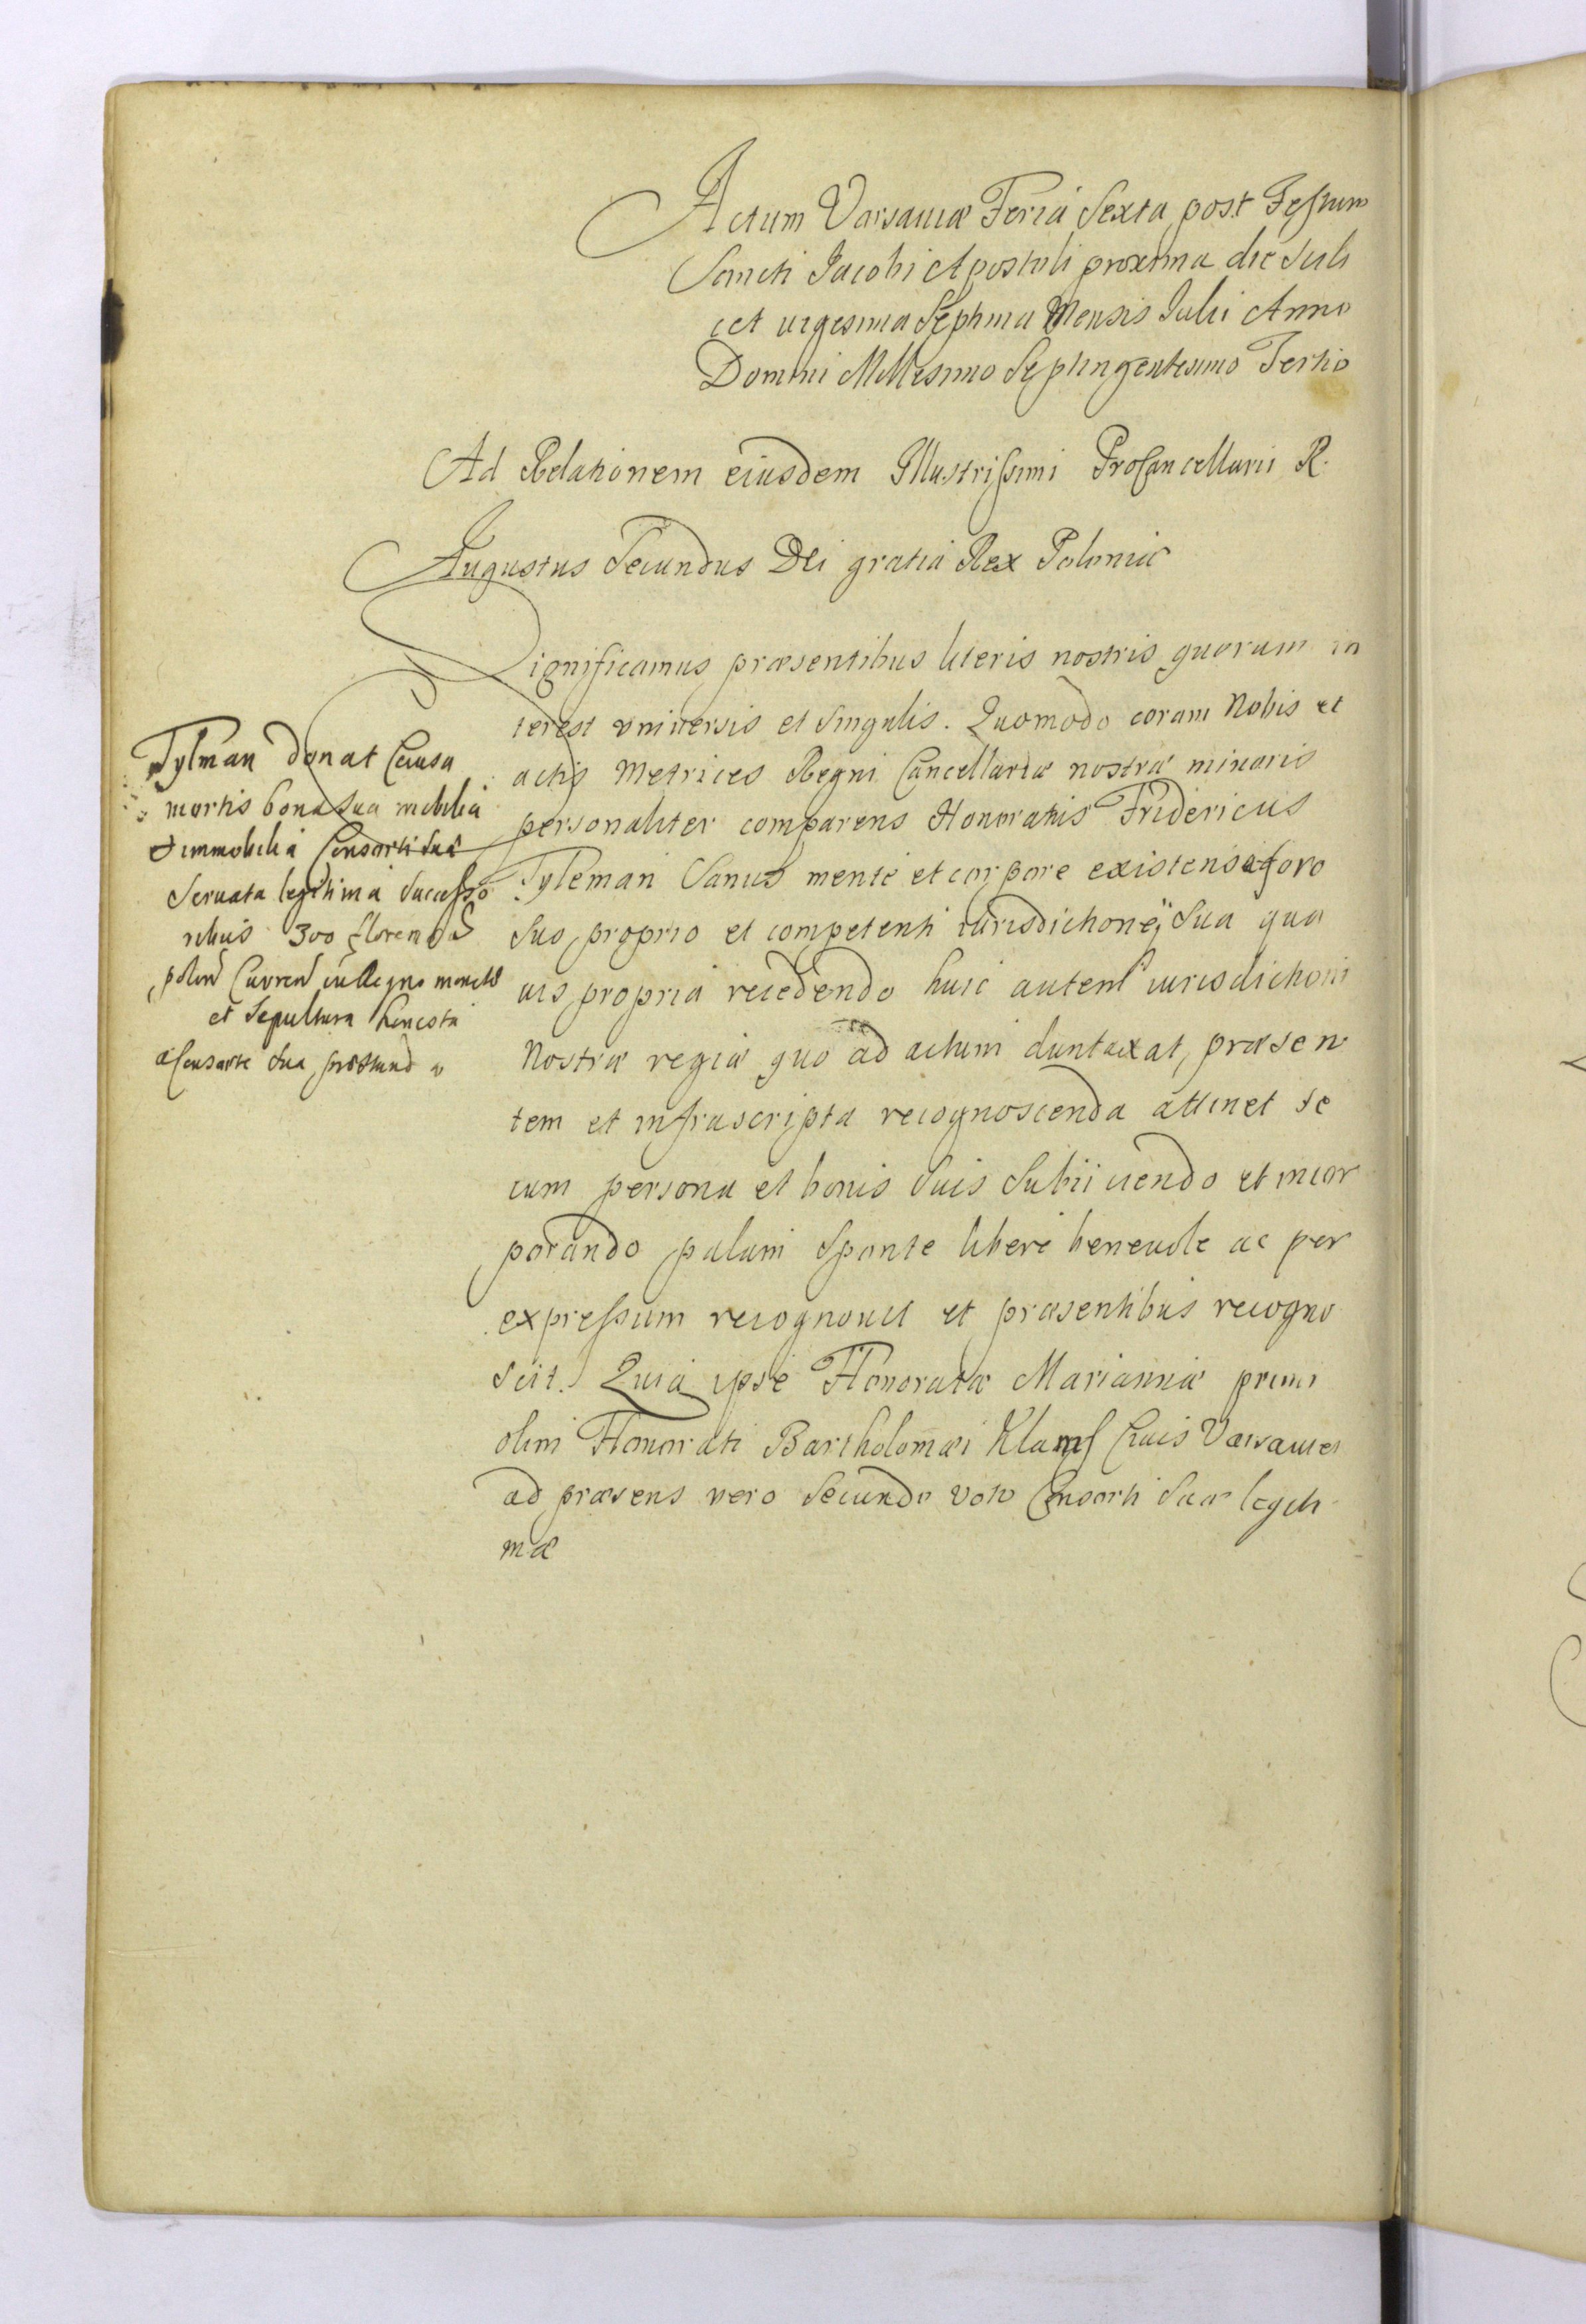 Actum Varsaviæ Feria Sexta post Festum
Sancti Jacobi Apostoli proxima die Scili
cet vigesima Septima Mensis Julii Anno
Domini Millesimo Septingentesimo Tertio
Ad Relationem eiusdem Illustrissimi ProCancellarii R.
Augustus Secundus Dei gratia Rex Poloniæ
Significamus præsentibus literis nostris quorum in
terest universis et Singulis. Quomodo coram Nobis et
actis Metrices Regni Cancellariæ nostræ minoris
personaliter comparens Honoratus Fridericus
Tyleman Sanus mente et corpore existens a foro
Suo proprio et competenti iurisdictioneq Sua qua
vis propria recedendo huic autem iurisdictioni
Nostræ regiæ quo ad actum duntaxat præsen
tem et infrascripta recognoscenda attinet se
cum persona et bonis Suis Subiiciendo et incor
porando palam Sponte libere benevole ac per
expressum recognovit et præsentibus recogno
scit. Quia ipse Honoratæ Mariannæ primi
olim Honorati Bartholomæi Civis Varsavien
ad præsens vero Secundo voto Consorti Suæ legiti
mæ
Tylman donat Causa
mortis bona Sua mobilia
et immobilia Consorti Suæ
Servata legitima Successo
ribus 300 florenos
polon Curren in Regno monetæ
et Sepultura honesta
a Consorte Sua præstanda